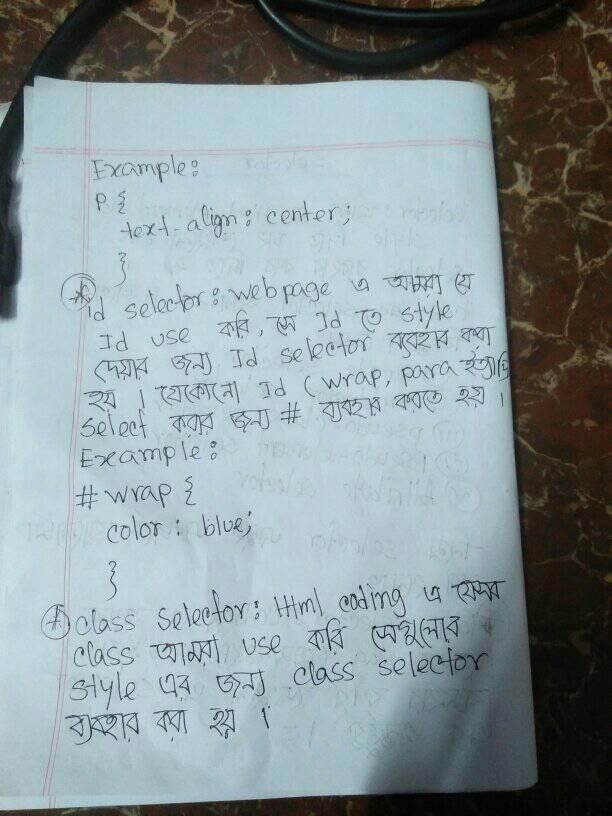 Example:
p {
text-align: center;
}
* id selector: webpage এ আমরা যে
Id use করি, সে Id তে style
দেয়ার জন্য Id selector ব্যবহার করা
হয় । যেকোনো Id (wrap, para ইত্যাদি)
select করার জন্য # ব্যবহার করতে হয় ।
Example:
# wrap {
color: blue;
}
* class selector: Html coding এ যেসব
class আমরা use করি সেগুলোর
style এর জন্য class selector
ব্যবহার করা হয় ।